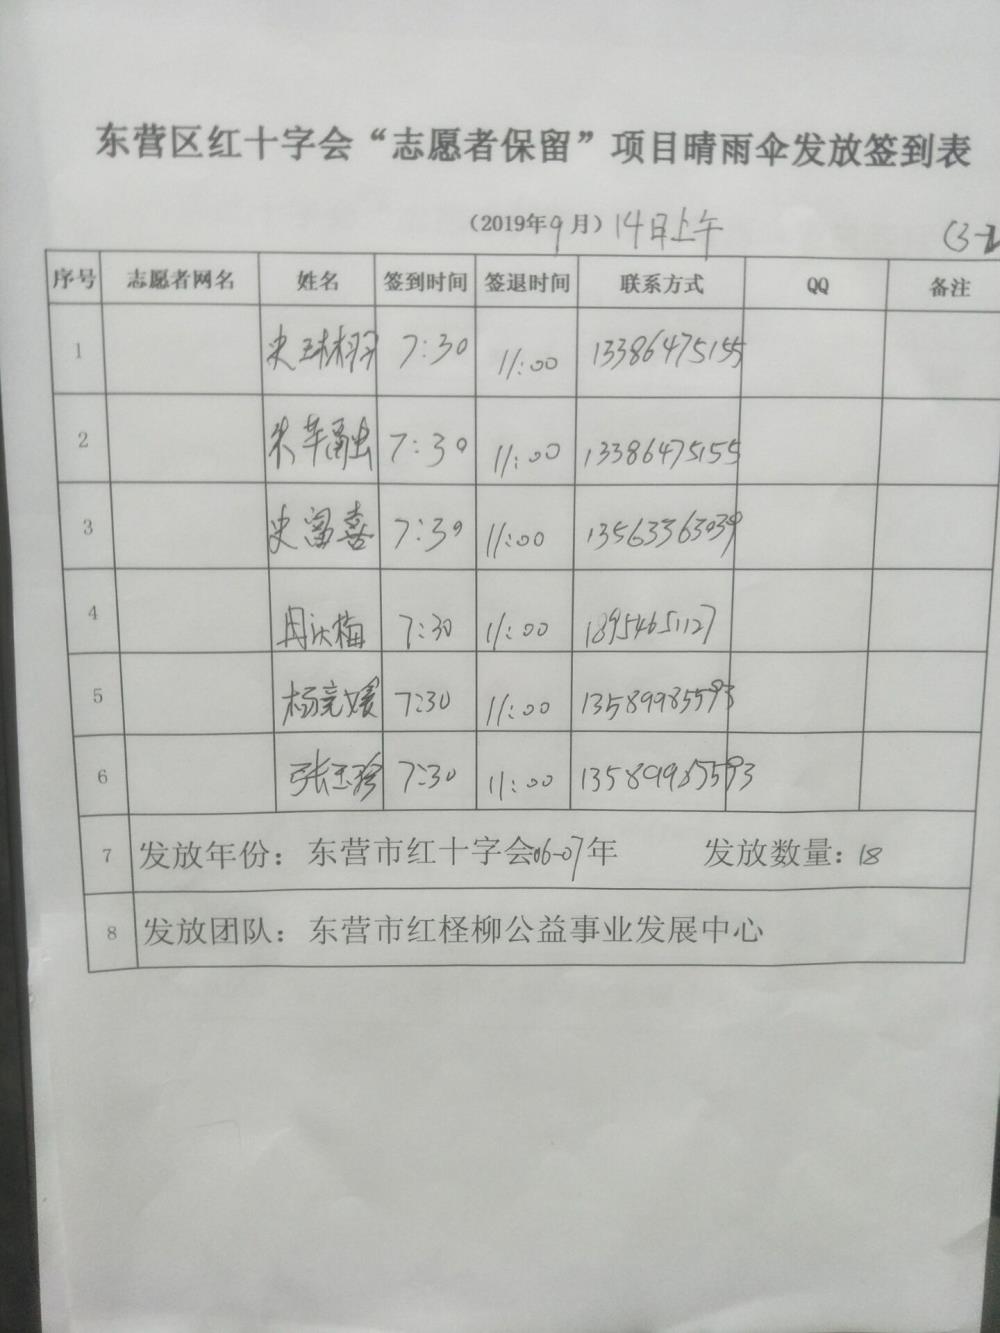 东营区红十字会“志愿者保留”项目晴雨伞发放签到表
（2019年9月）14日上午 (3-2
序号 志愿者网名 姓名 签到时间 签退时间 联系方式 QQ 备注
1 7:30 11:00 13386475155
2 7:30 11:00 13386475155
3 史富喜 7:30 11:00 13563363039
4 周庆梅 7:30 11:00 18954651127
5 杨竞媛 7:30 11:00 13589985593
6 张玉珍 7:30 11:00 13589985593
7 发放年份：东营市红十字会06-07年 发放数量：18
8 发放团队：东营市红柽柳公益事业发展中心